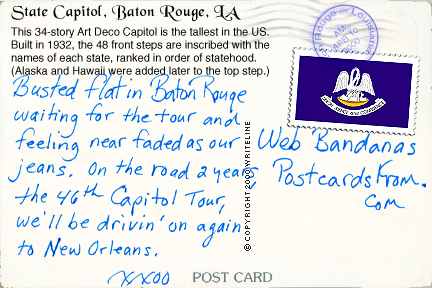 State Capitol, Baton Rouge, LA
This 34-story Art Deco Capitol is the tallest in the US.
Built in 1932, the 48 front steps are inscribed with the
names of each state, ranked in order of statehood.
(Alaska and Hawaii were added later to the top step.)
Busted flat in Baton Rouge
waiting for the tour and
feeling near faded as our
jeans. On the road 2 years,
the 46th Capitol Tour,
we'll be drivin' on again
to New Orleans.
xxoo
Web Bandanas
PostcardsFrom.
com
© COPYRIGHT 2000 WRITELINE
POST CARD